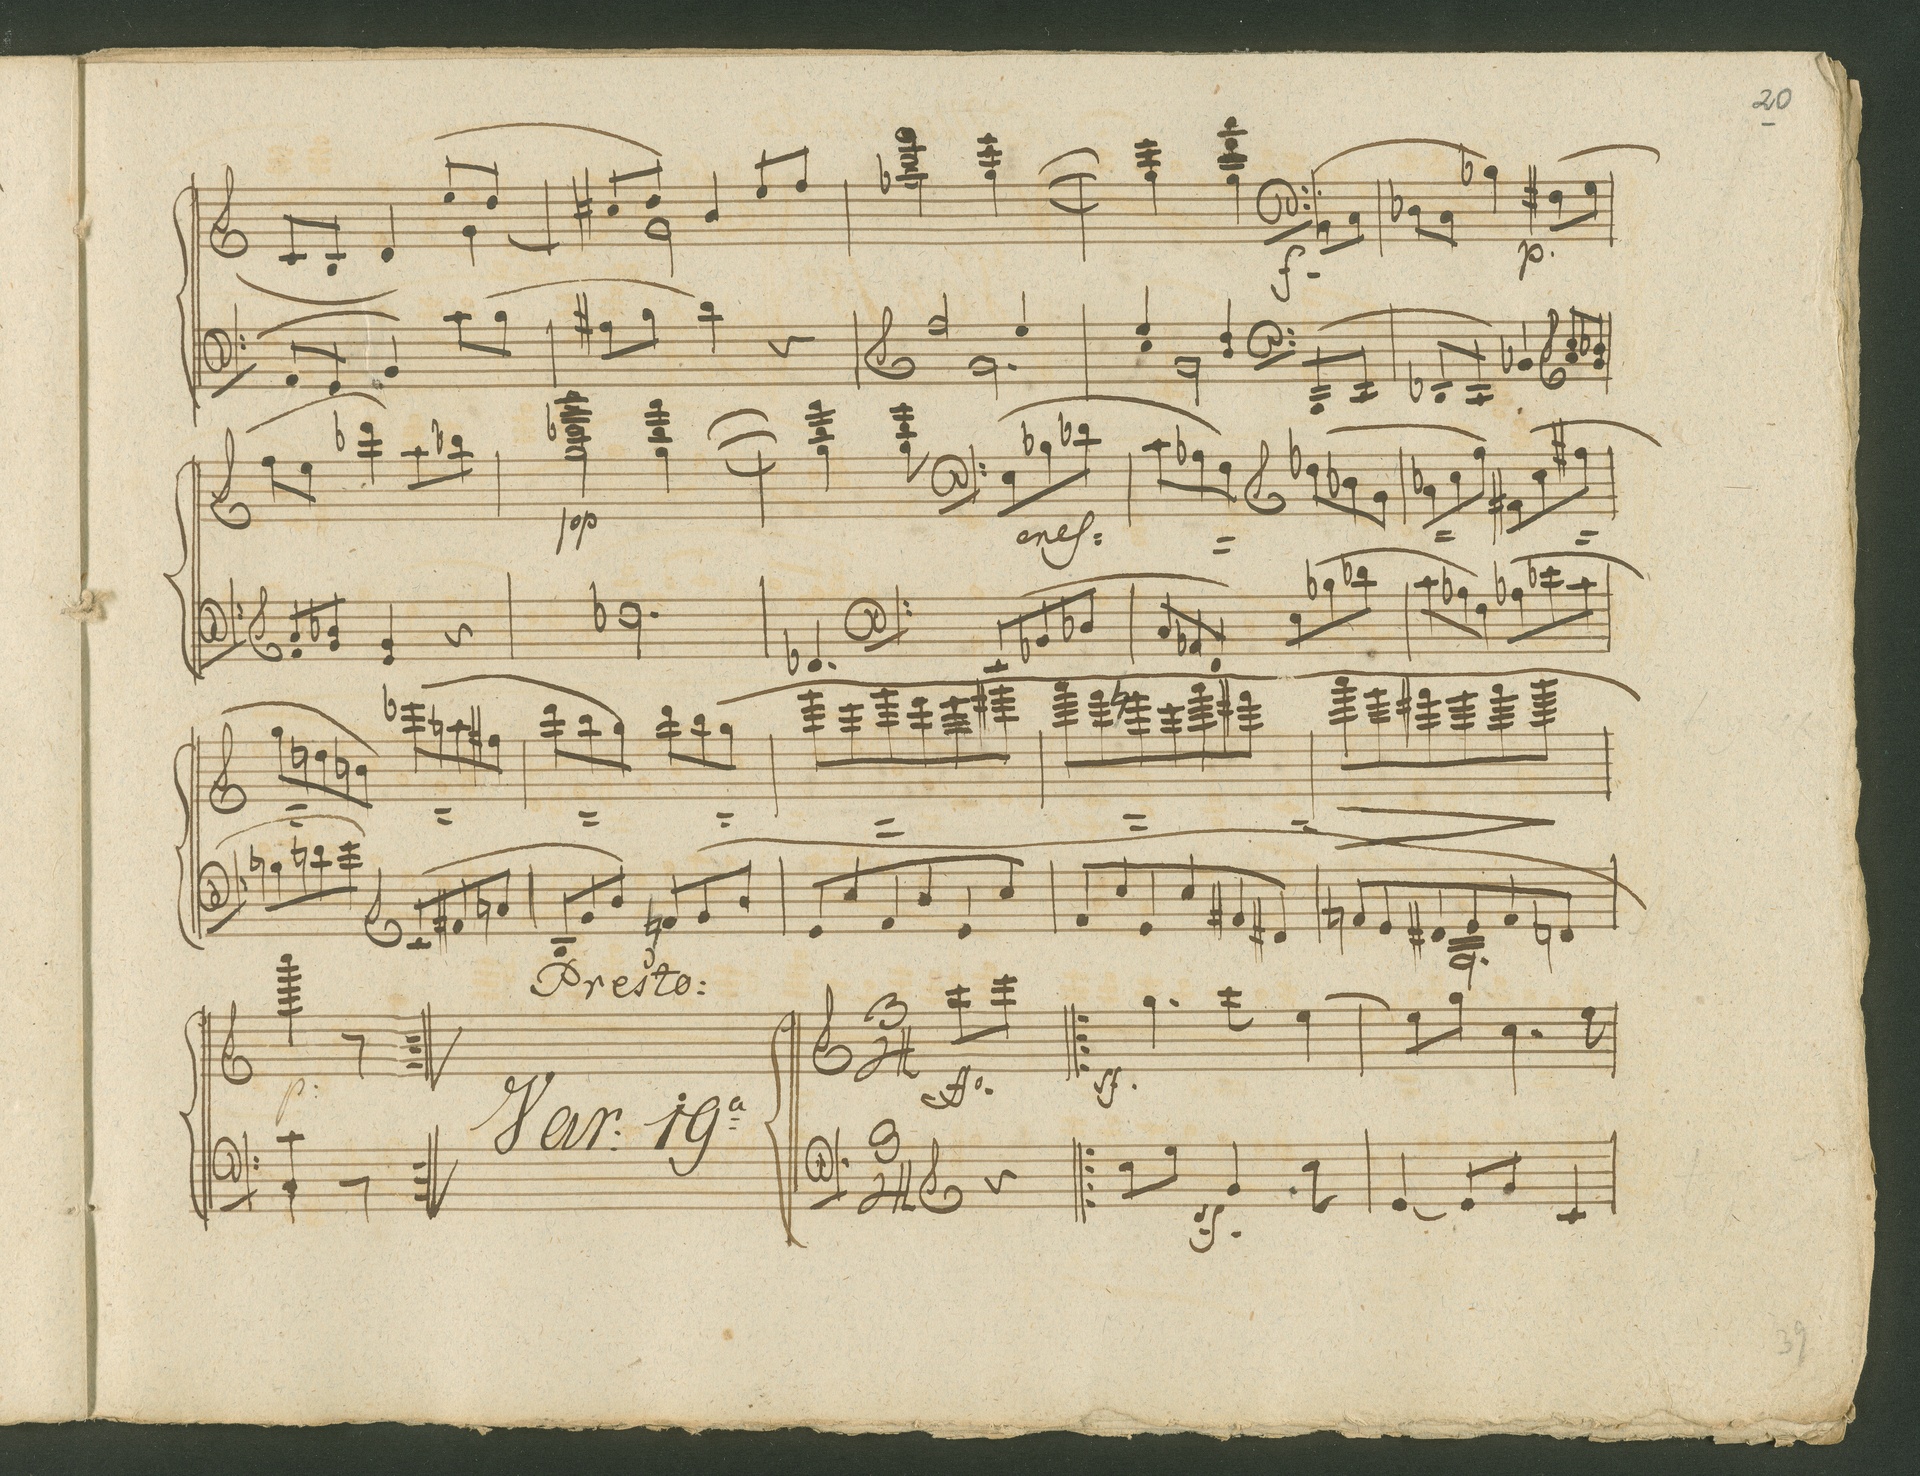 20
f.
p.
pp
cresf:
=
=
=
=
=
=
=
=
=
=
Presto:
p:
Var. 19a
3
4
ffo.
sf.
3
4
sf.
39